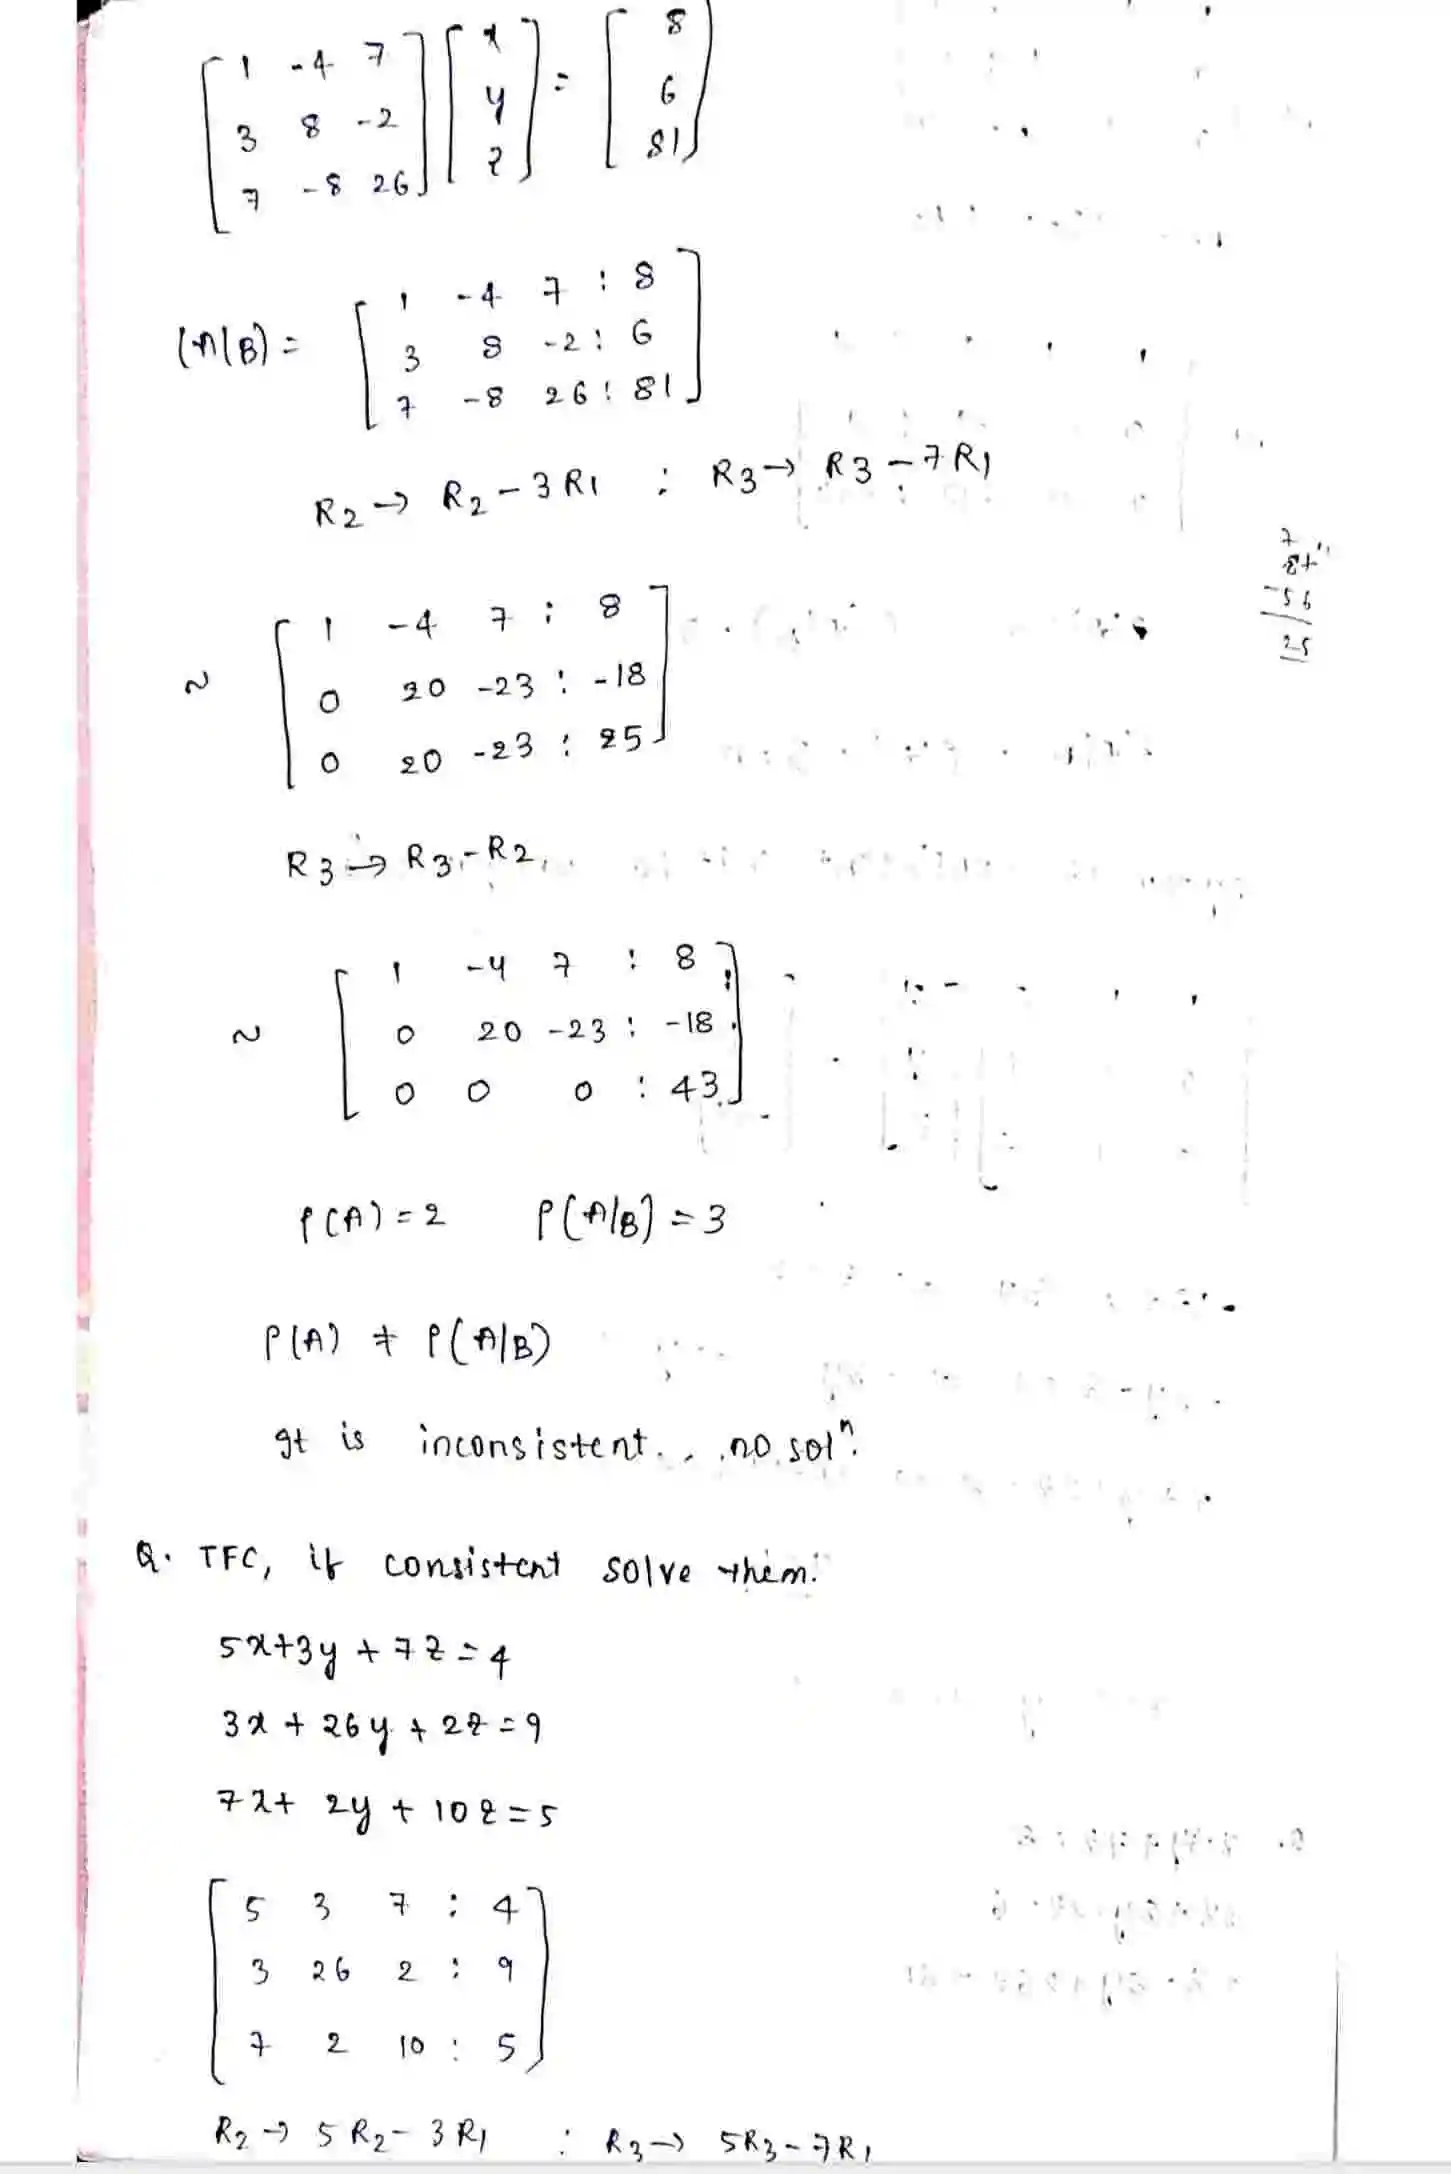 [1 -4 7] [x] = [8]
[3 8 -2] [y] [6]
[7 -8 26] [z] [81]
(A|B) = [1 -4 7 : 8]
[3 8 -2 : 6]
[7 -8 26 : 81]
R2 → R2 - 3R1 ; R3 → R3 - 7R1
7
8+
-56
25
~ [1 -4 7 : 8]
[0 20 -23 : -18]
[0 20 -23 : 25]
R3 → R3 - R2
~ [1 -4 7 : 8]
[0 20 -23 : -18]
[0 0 0 : 43]
ρ(A) = 2 ρ(A|B) = 3
ρ(A) ≠ ρ(A|B)
It is inconsistent. , no solⁿ.
Q. TFC, if consistent solve them:
5x+3y + 7z = 4
3x + 26y + 2z = 9
7x + 2y + 10z = 5
[5 3 7 : 4]
[3 26 2 : 9]
[7 2 10 : 5]
R2 → 5R2 - 3R1 : R3 → 5R3 - 7R1